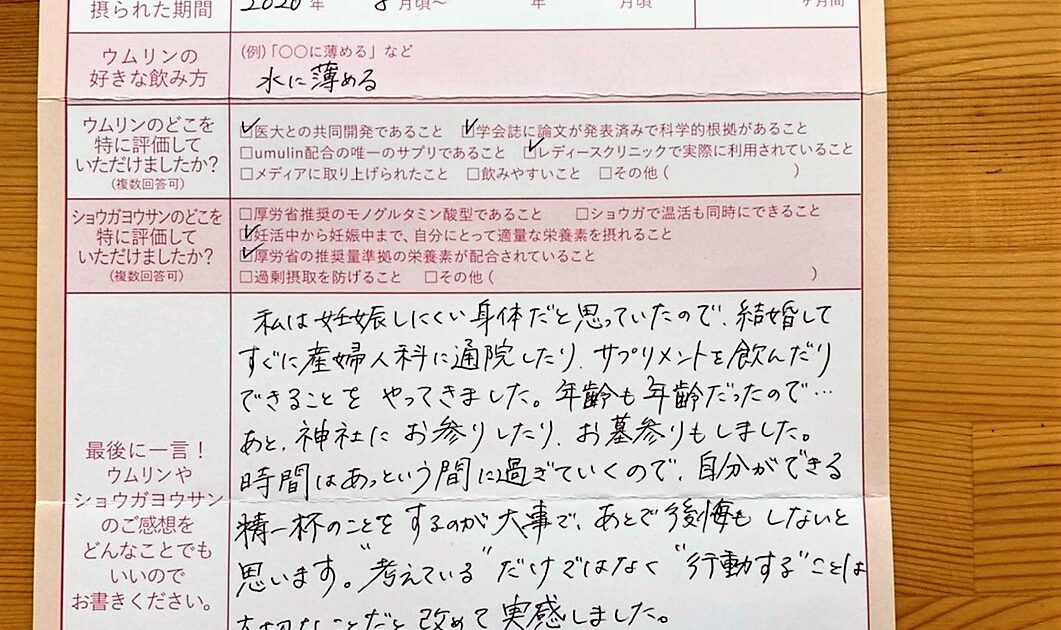 摂られた期間 2020年 8月頃〜 年 月頃 ヶ月間
ウムリンの
好きな飲み方
(例)「〇〇に薄める」など
水に薄める
ウムリンのどこを
特に評価して
いただけましたか?
(複数回答可)
☑医大との共同開発であること ☑学会誌に論文が発表済みで科学的根拠があること
□umulin配合の唯一のサプリであること ☑レディースクリニックで実際に利用されていること
□メディアに取り上げられたこと □飲みやすいこと □その他 ( )
ショウガヨウサンのどこを
特に評価して
いただけましたか?
(複数回答可)
□厚労省推奨のモノグルタミン酸型であること □ショウガで温活も同時にできること
☑妊活中から妊娠中まで、自分にとって適量な栄養素を摂れること
☑厚労省の推奨量準拠の栄養素が配合されていること
□過剰摂取を防げること □その他 ( )
最後に一言!
ウムリンや
ショウガヨウサン
のご感想を
どんなことでも
いいので
お書きください。
私は妊娠しにくい身体だと思っていたので、結婚して
すぐに産婦人科に通院したり、サプリメントを飲んだり
できることを やってきました。年齢も年齢だったので…
あと、神社に お参りしたり、お墓参りもしました。
時間はあっという間に過ぎていくので、自分ができる
精一杯のことを するのが 大事で、あとで後悔も しないと
思います。"考えている"だけではなく "行動する"ことは
大切なことだと 改めて 実感しました。